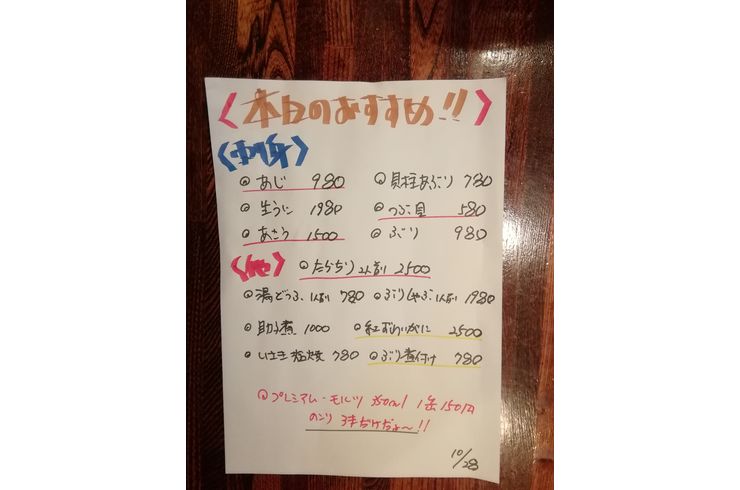 本日のおすすめ!!
刺身
あじ 980 貝柱あぶり 780
生うに 1980 つぶ貝 580
1500 ぶり 980
他 たらちり 2人前 2500
湯どうふ 1人前 780 ぶりしゃぶ 1人前 1980
助子煮 1000 紅ずわいがに 2500
いさき塩焼 780 ぶり煮付け 780
プレミアム・モルツ 350ml 1缶150円
のこり 3本だけだよ〜!!
10/28